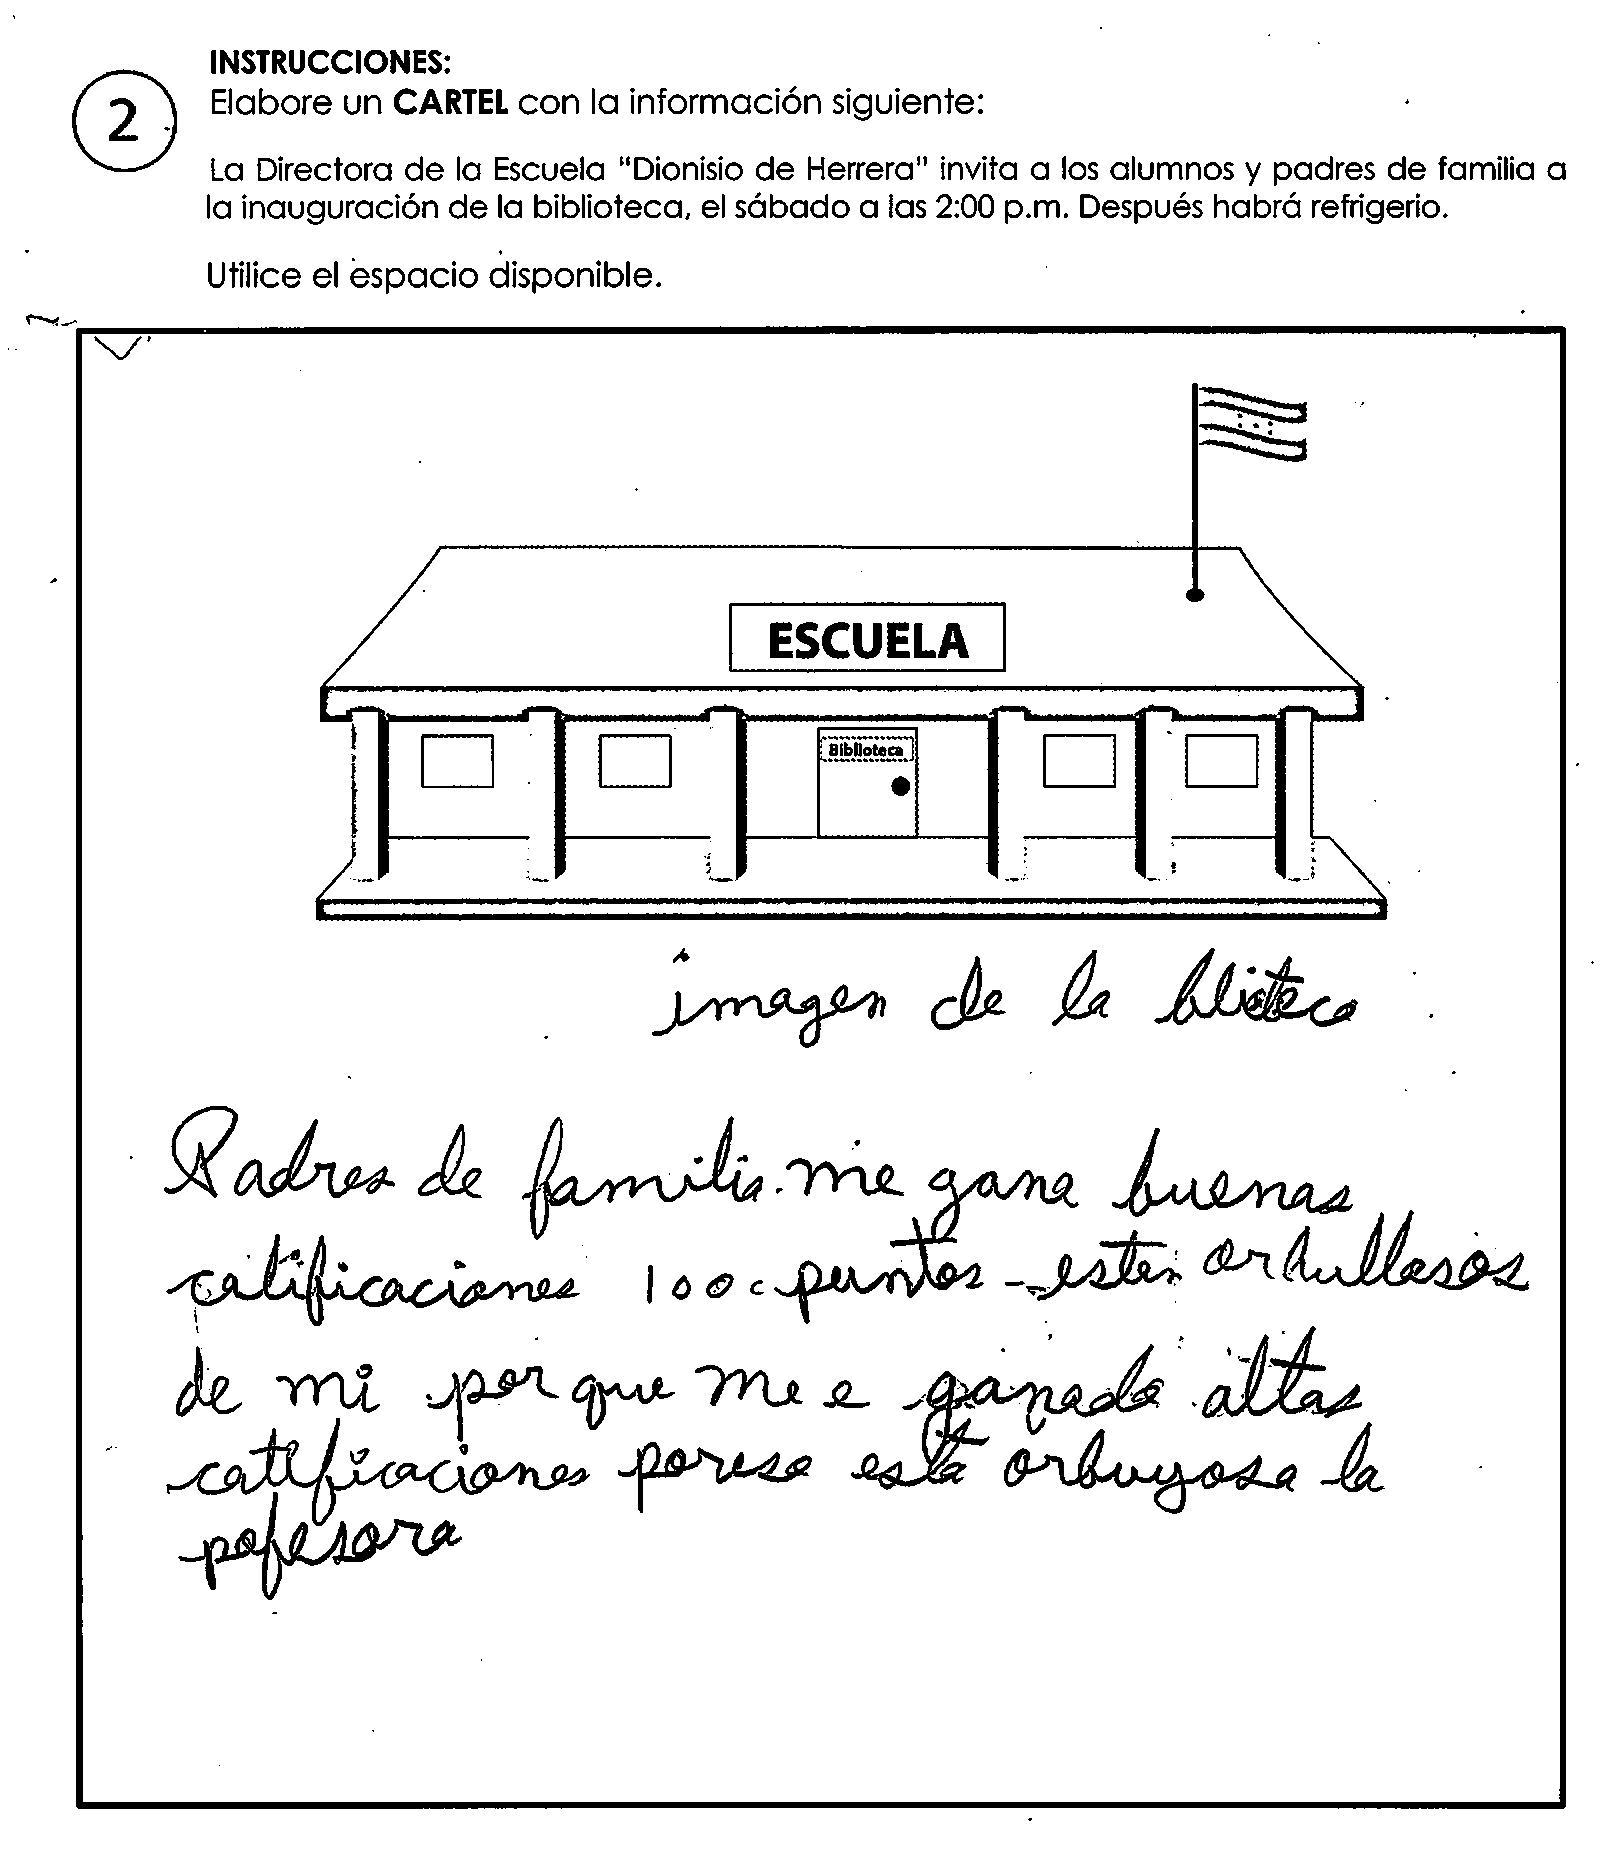 INSTRUCCIONES:
2
Elabore un CARTEL con la información siguiente:
La Directora de la Escuela "Dionisio de Herrera" invita a los alumnos y padres de familia a
la inauguración de la biblioteca, el sábado a las 2:00 p.m. Después habrá refrigerio.
Utilice el espacio disponible.
ESCUELA
Biblioteca
imagen de la blioteca
Padres de familia. me gane buenas
calificaciones 100 puntos - esten orhullosos
de mi por que me e ganado altas
catificaciones poreso esta orbuyosa la
pofesora